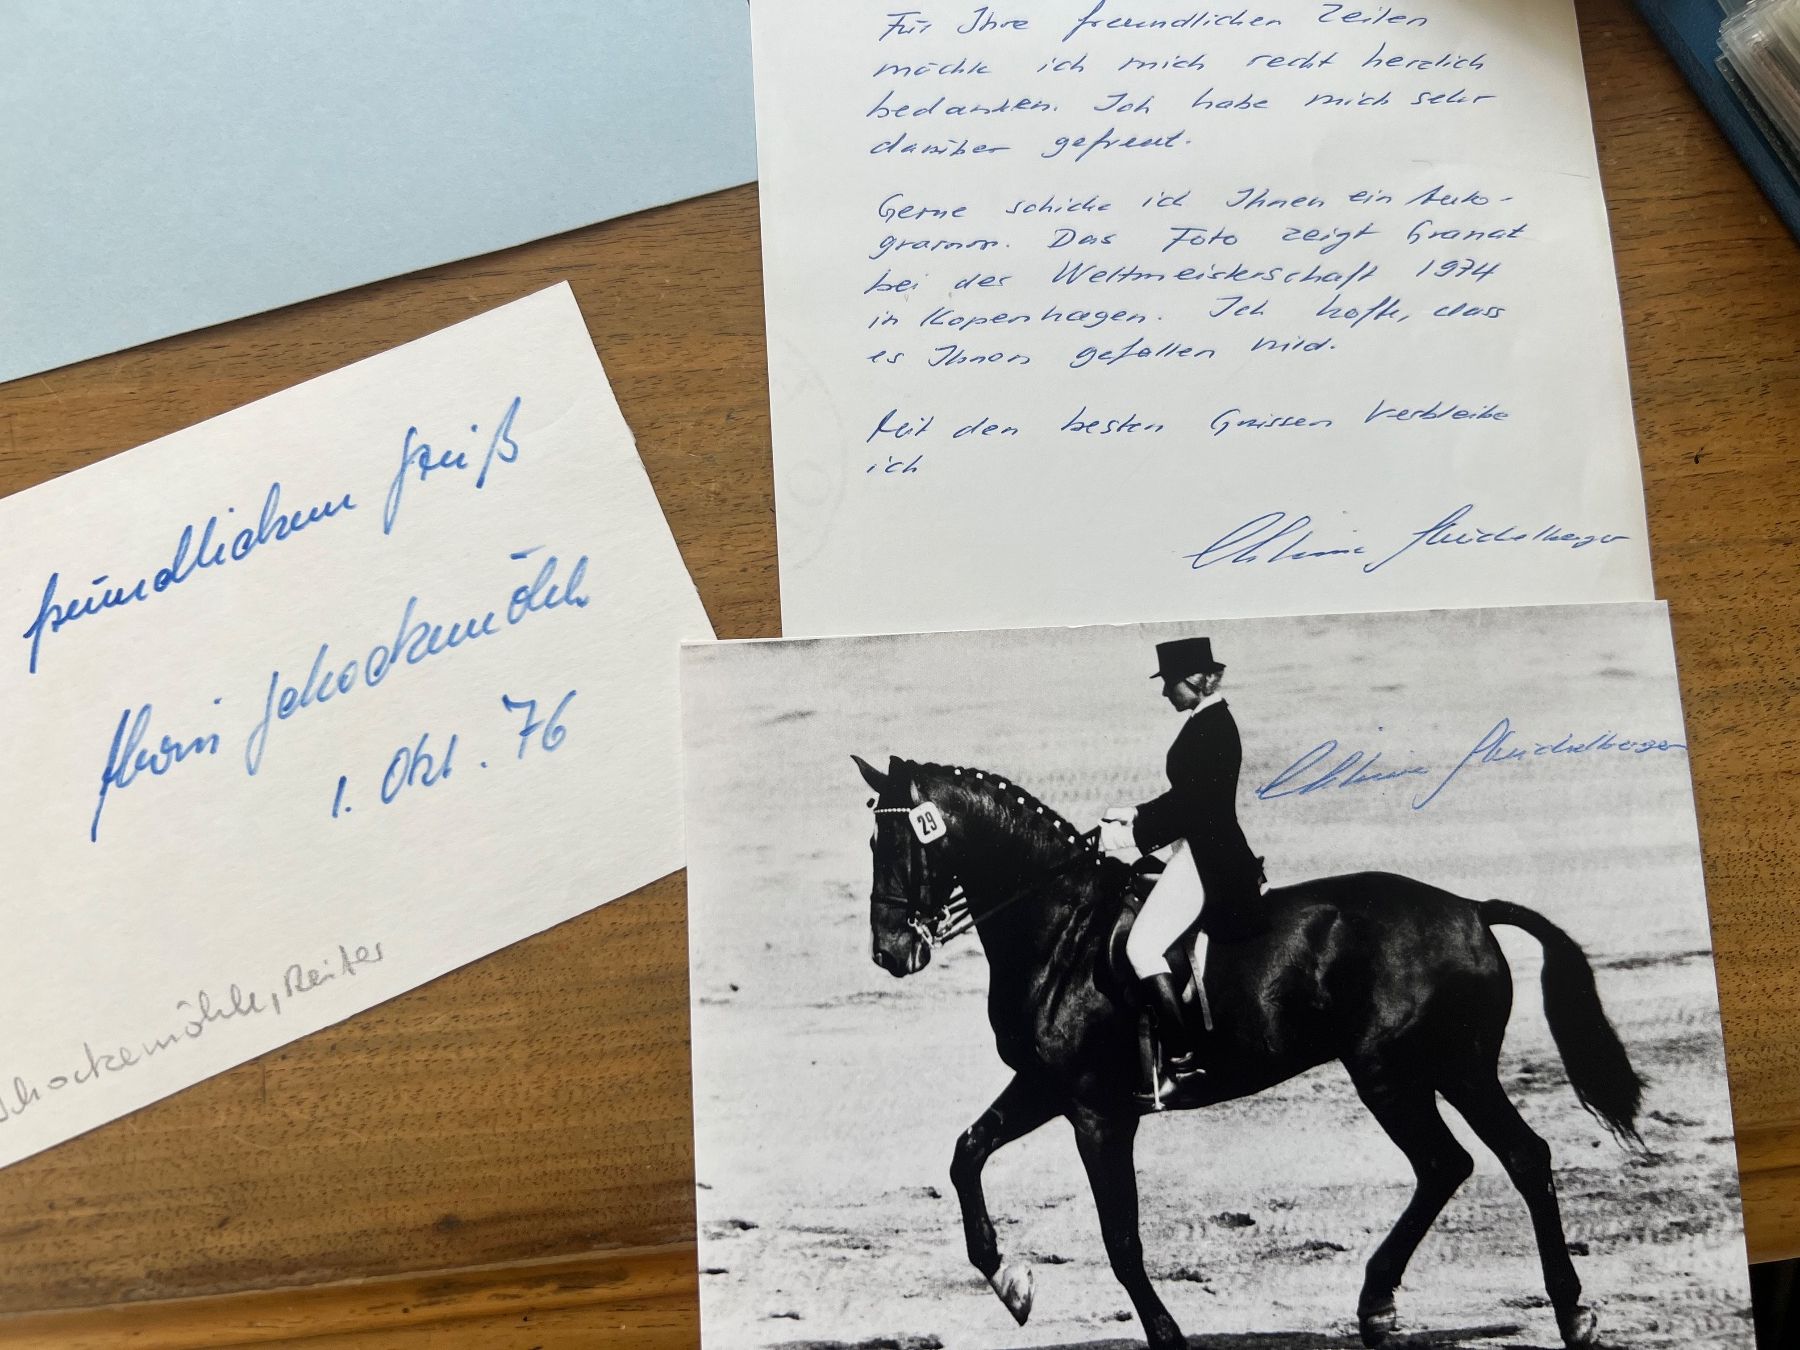 Für Ihre freundlichen Zeilen
möchte ich mich recht herzlich
bedanken. Ich habe mich sehr
darüber gefreut.
Gerne schicke ich Ihnen ein Auto-
gramm. Das Foto zeigt Granat
bei der Weltmeisterschaft 1974
in Kopenhagen. Ich hoffe, dass
es Ihnen gefallen wird.
Mit den besten Grüssen verbleibe
ich
Christine Stückelberger
freundlichem Gruß
Alwin Schockemöhle
1. Okt. 76
Schockemöhle, Reiter
Christine Stückelberger
29